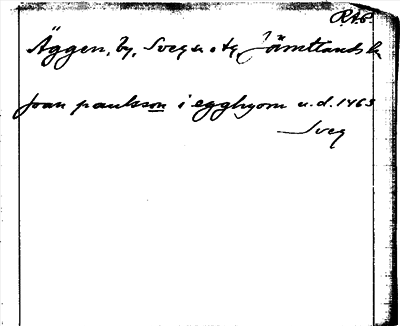 R.A.P.
Äggen, by, Svegs s. o. tg, Jämtlands l.
Joan paulsson i egghyom u.d. 1463
Sveg